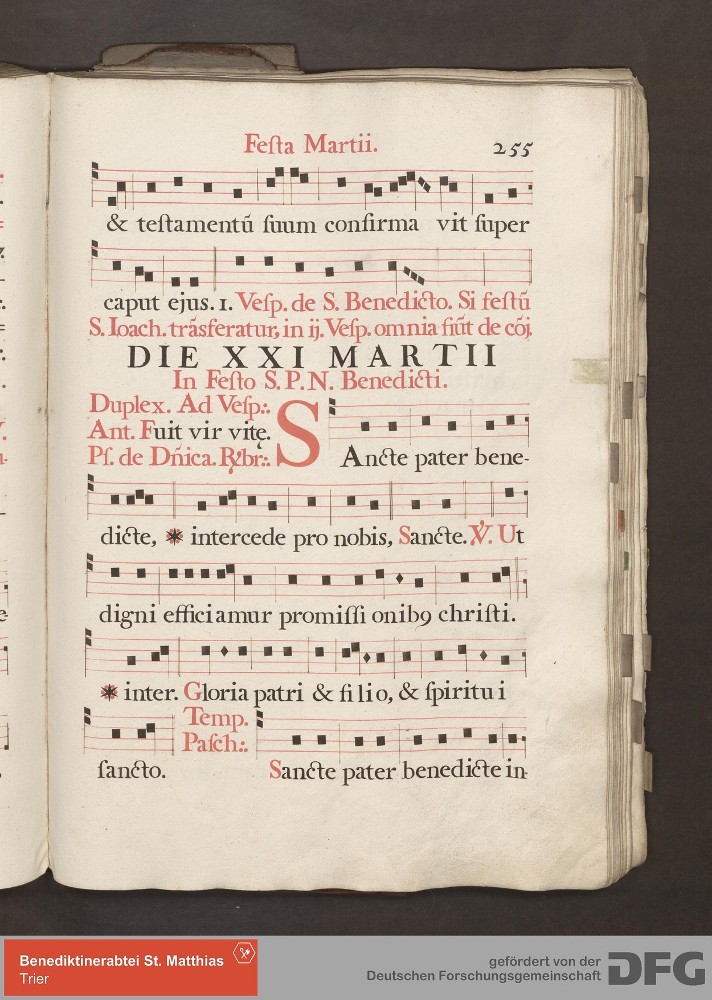 Feſta Martii.
255
& teſtamentũ ſuum confirma vit ſuper
caput ejus. 1. Veſp. de S. Benedicto. Si feſtũ
S. Ioach. trãsferatur, in ij. Veſp. omnia fiũt de cõj.
DIE XXI MARTII
In Feſto S. P. N. Benedicti.
Duplex. Ad Veſp:.
Ant. Fuit vir vitę.
Pſ. de Dñica. R̷br:.
SAncte pater bene-
dicte, ⁕ intercede pro nobis, Sancte. V̷. Ut
digni efficiamur promiſſi onibꝰ chriſti.
⁕ inter. Gloria patri & filio, & ſpiritu i
Temp.
Paſch:.
ſancto. Sancte pater benedicte in-
Benediktinerabtei St. Matthias
Trier
gefördert von der
Deutschen Forschungsgemeinschaft
DFG